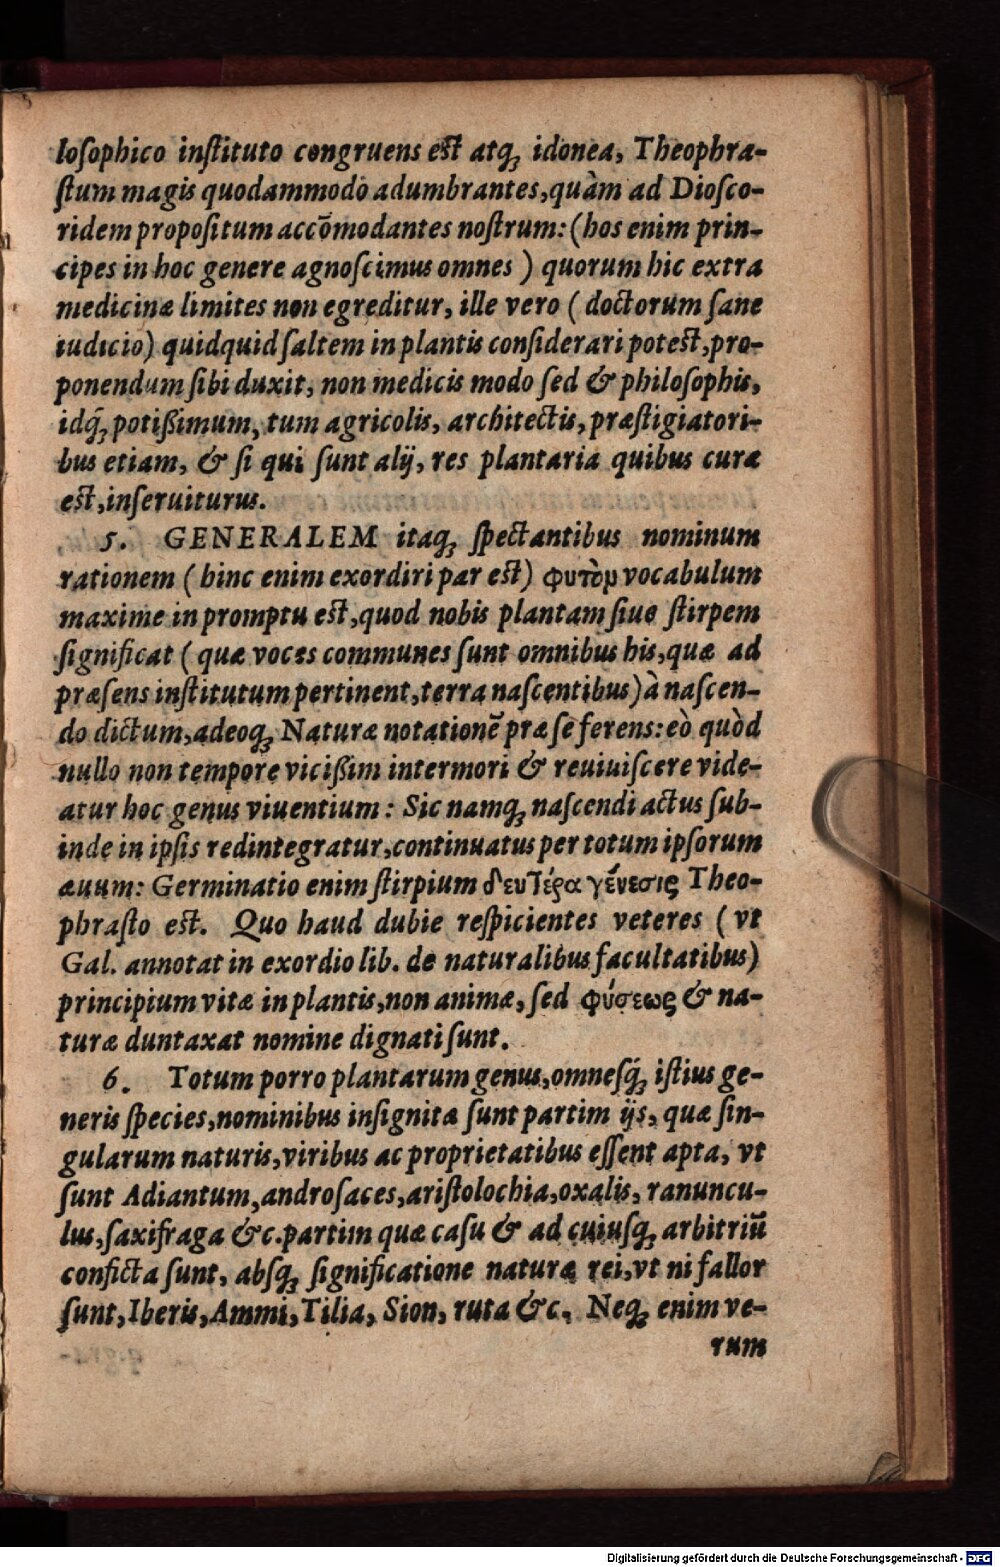 loſophico inſtituto congruens eſt atq́; idonea, Theophra-
ſtum magis quodammodo adumbrantes, quàm ad Dioſco-
ridem propoſitum accõmodantes noſtrum: (hos enim prin-
cipes in hoc genere agnoſcimus omnes ) quorum hic extra
medicinæ limites non egreditur, ille vero ( doctorum ſane
iudicio) quidquid ſaltem in plantis conſiderari poteſt, pro-
ponendum ſibi duxit, non medicis modo ſed & philoſophis,
idq́; potißimum, tum agricolis, architectis, præſtigiatori-
bus etiam, & ſi qui ſunt alij, res plantaria quibus curæ
eſt, inſeruiturus.
5. GENERALEM itaq; ſpectantibus nominum
rationem ( hinc enim exordiri par eſt) φυτὸν vocabulum
maxime in promptu eſt, quod nobis plantam ſiue ſtirpem
ſignificat ( quæ voces communes ſunt omnibus his, quæ ad
præſens inſtitutum pertinent, terra naſcentibus) à naſcen-
do dictum, adeoq; Naturæ notationẽ præ ſe ferens: eò quòd
nullo non tempore vicißim intermori & reuiuiſcere vide-
atur hoc genus viuentium: Sic namq; naſcendi actus ſub-
inde in ipſis redintegratur, continuatus per totum ipſorum
æuum: Germinatio enim ſtirpium δευτέρα γένεσις Theo-
phraſto eſt. Quo haud dubie reſpicientes veteres ( vt
Gal. annotat in exordio lib. de naturalibus facultatibus)
principium vitæ in plantis, non animæ, ſed φύσεως & na-
turæ duntaxat nomine dignati ſunt.
6. Totum porro plantarum genus, omneſq́; iſtius ge-
neris ſpecies, nominibus inſignitæ ſunt partim ijs, quæ ſin-
gularum naturis, viribus ac proprietatibus eſſent apta, vt
ſunt Adiantum, androſaces, ariſtolochia, oxalis, ranuncu-
lus, ſaxifraga &c. partim quæ caſu & ad cuiuſq; arbitriũ
conficta ſunt, abſq; ſignificatione naturæ rei, vt ni fallor
ſunt, Iberis, Ammi, Tilia, Sion, ruta &c. Neq; enim ve-
rum
Digitalisierung gefördert durch die Deutsche Forschungsgemeinschaft - DFG